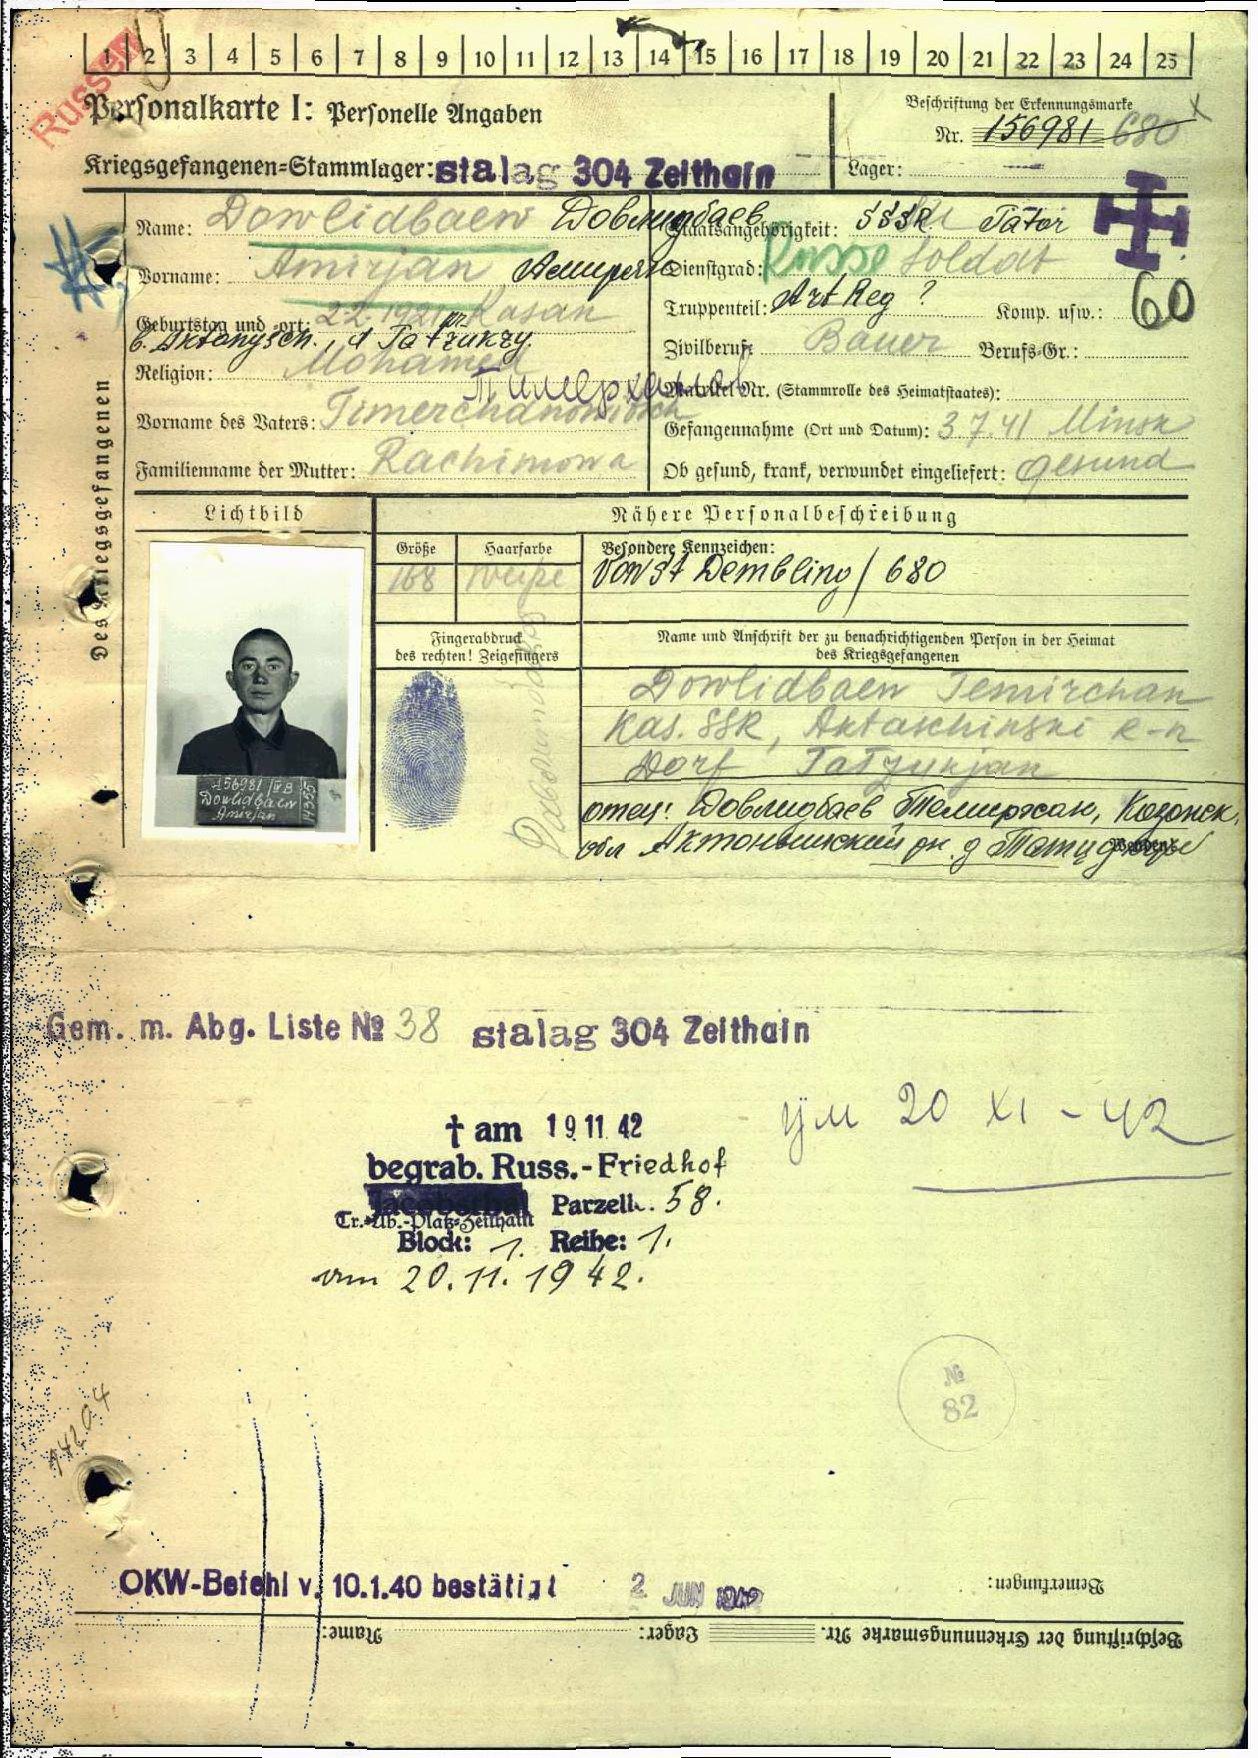 Russen
1 2 3 4 5 6 7 8 9 10 11 12 13 14 15 16 17 18 19 20 21 22 23 24 25
Personalkarte I: Personelle Angaben
Beschriftung der Erkennungsmarke
Nr. 156981 680 x
Kriegsgefangenen-Stammlager: stalag 304 Zeithain
Lager:
Des Kriegsgefangenen
Name: Dowlidbaew Довлидбаев
Staatsangehörigkeit: SSSR Tator
Vorname: Amirjan
Dienstgrad: Russe Soldat
Geburtstag und -ort: 2.2.1921 Kasan
Truppenteil: Art Reg ? Komp. usw.: 60
Zivilberuf: Bauer Berufs-Gr.:
Religion: Mohamed
Matrikel Nr. (Stammrolle des Heimatstaates):
Тимерханов
Vorname des Vaters: Timerchanowitsch
Gefangennahme (Ort und Datum): 3.7.41 Minsk
Familienname der Mutter: Rachimowa
Ob gesund, krank, verwundet eingeliefert: gesund
Lichtbild
Nähere Personalbeschreibung
Größe Haarfarbe Besondere Kennzeichen:
168 Weiße Von St Demblino / 680
Fingerabdruck
des rechten! Zeigefingers
Name und Anschrift der zu benachrichtigenden Person in der Heimat
des Kriegsgefangenen
Dowlidbaew Temirchan
Kas. SSR, Aktaschinski R-n
Dorf Tatzunjan
отец: Довлидбаев Темиржан, Казанск.
обл Актанышский рн. д
156981 / IV B
Dowlidbaew
Amirjan
Gem. m. Abg. Liste № 38 stalag 304 Zeithain
† am 19 11 42
ум 20 XI - 42
begrab. Russ.-Friedhof
Jacobsthal Parzelle 58.
Tr.-Üb.-Platz-Zeithain
Block: 1. Reihe: 1.
am 20.11.1942.
№
82
14204
OKW-Befehl v. 10.1.40 bestätigt 2 JUN 1942
Bemerkungen:
Beschriftung der Erkennungsmarke Nr. Lager: Name: